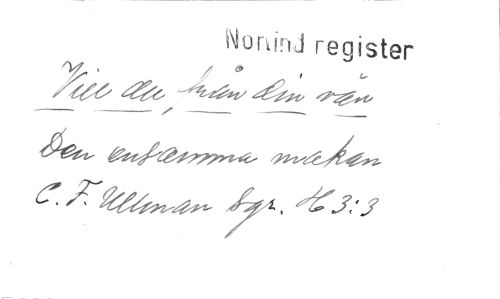 Norlind register
Vill du, från din vän
Den ensamma makan
C. F. Ullman Sgr. H 3:3